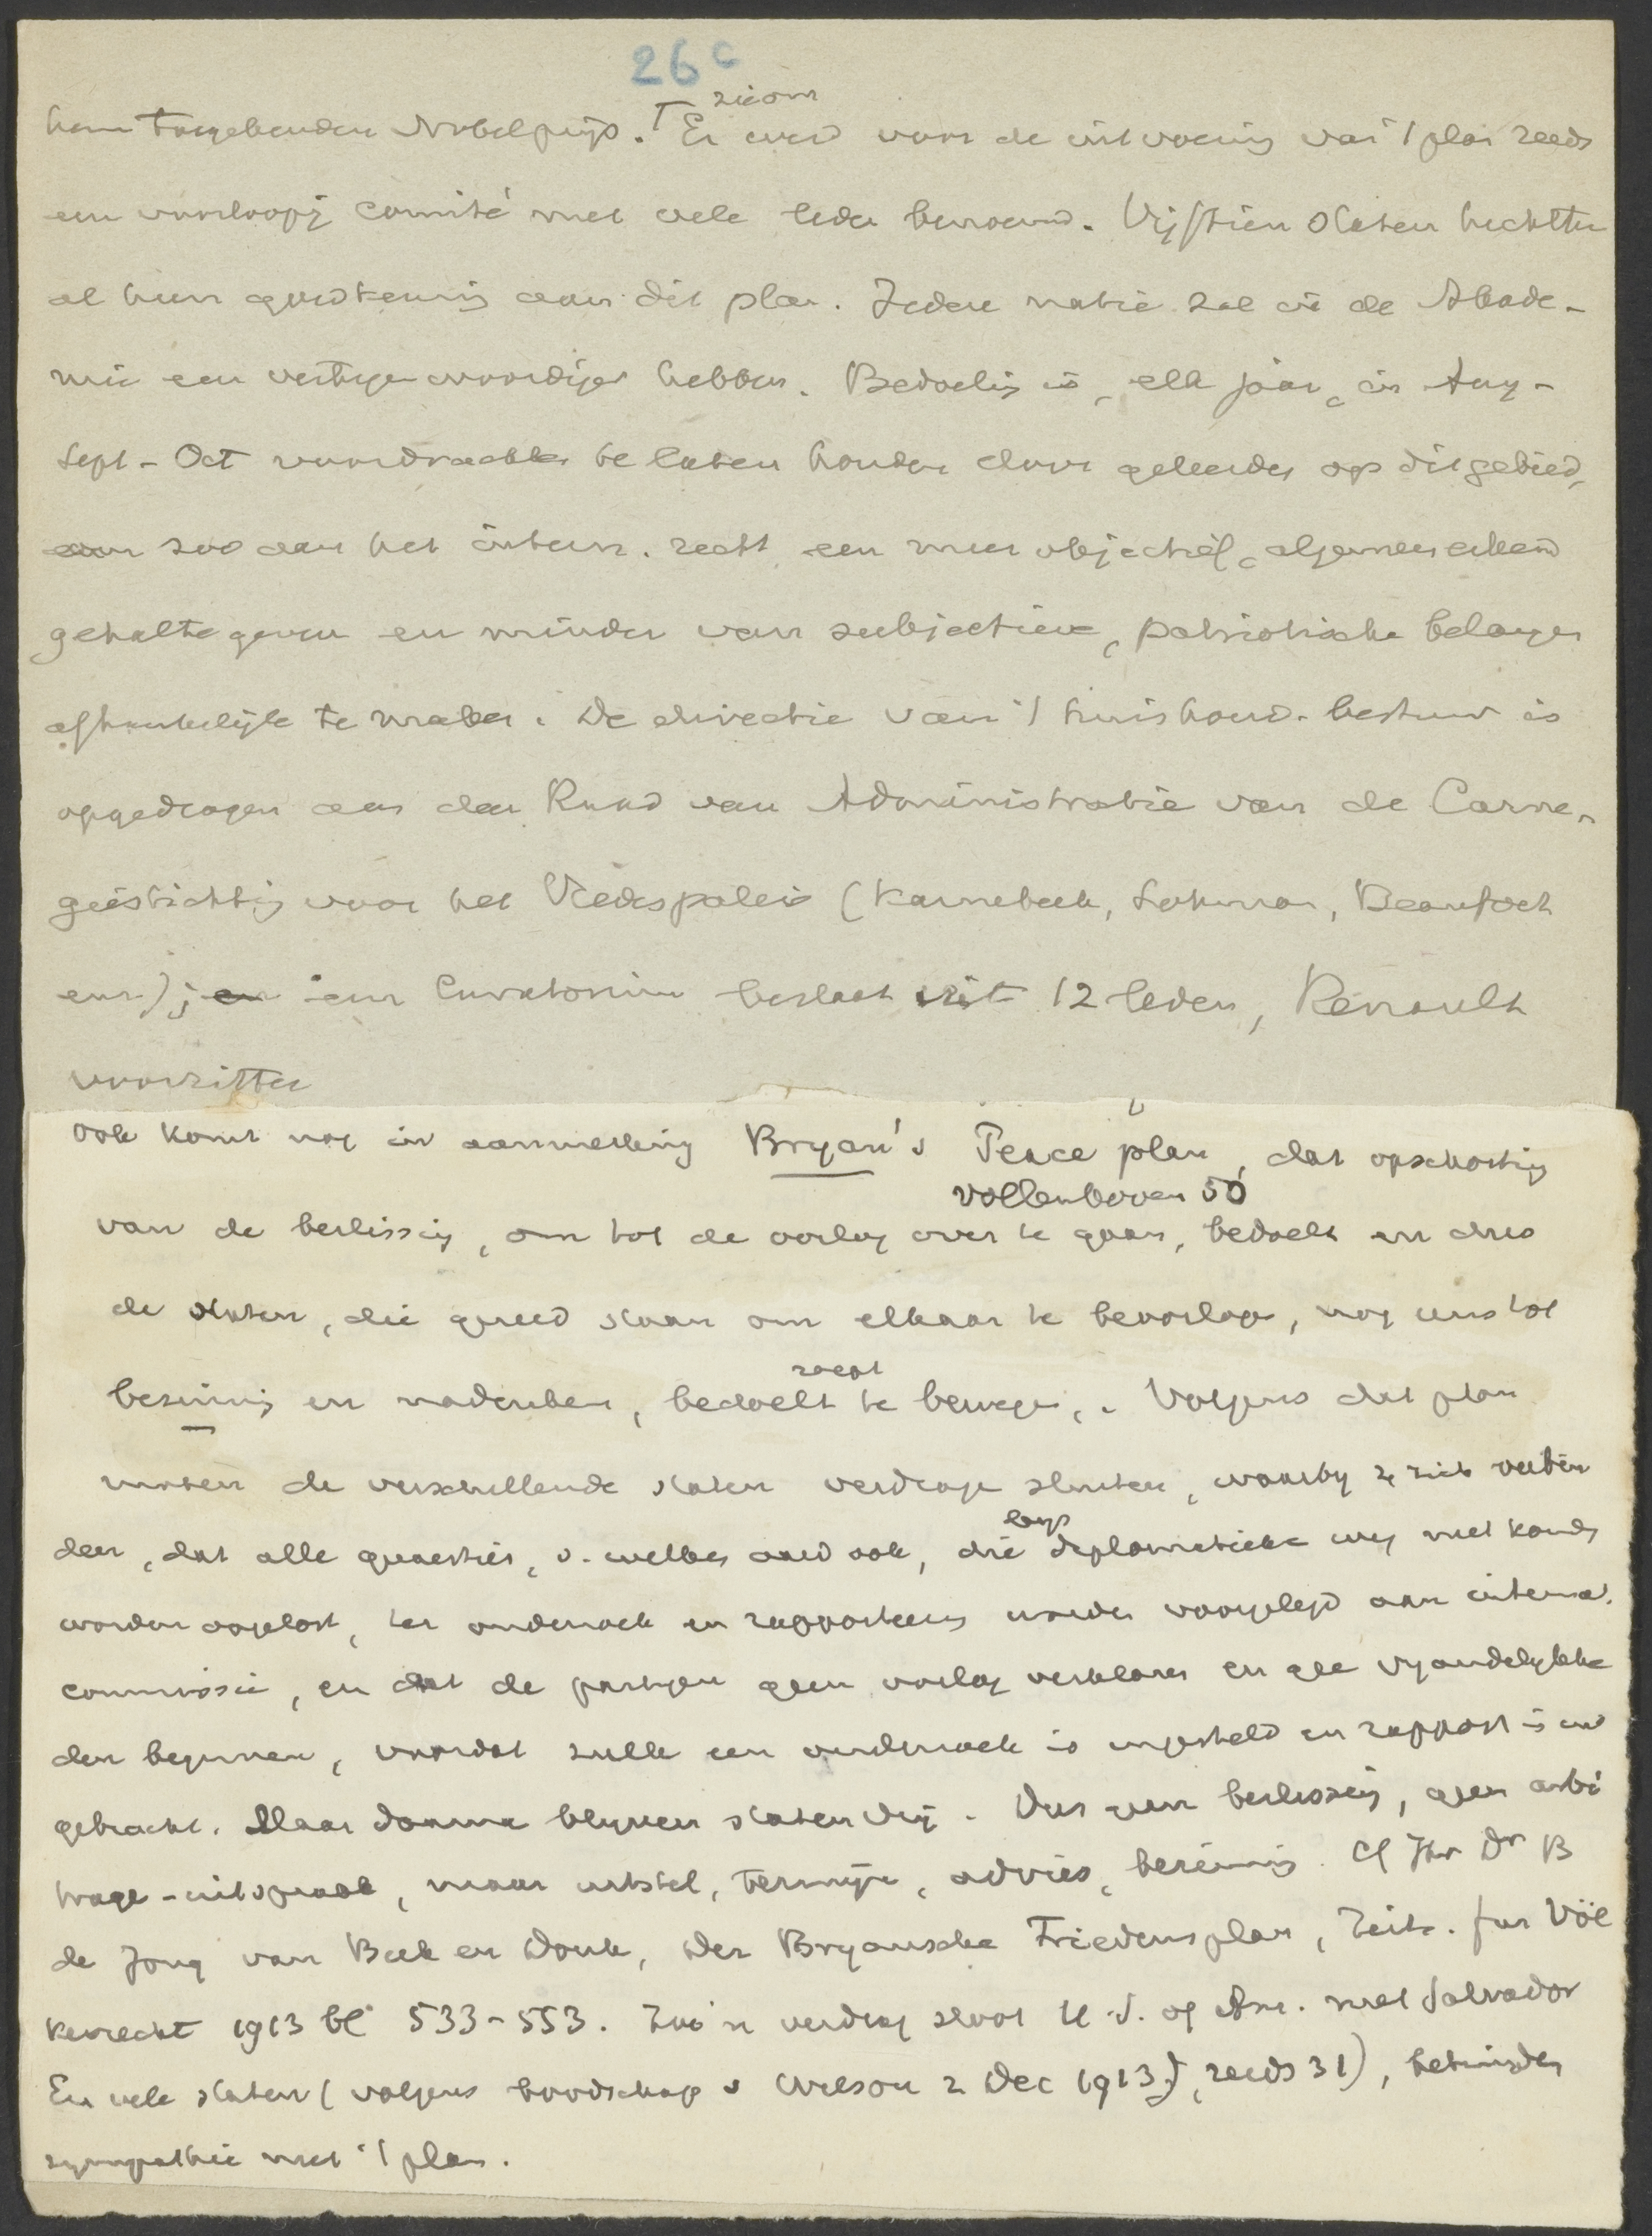 26c
hem toegekenden Nobelprijs. Er werd voor de uitvoering van 't plan reeds
zie om
een voorloopig comité met vele leden benoemd. Vijftien Staten hechtten
al hun goedkeuring aan dit plan. Iedere natie zal in de Akade-
mie een vertegenwoordiger hebben. Bedoeling is, elk jaar, in Aug-
Sept-Oct voordrachten te laten houden door geleerden op dit gebied,
zoo aan het intern. recht een meer objectief, algemeen erkend
gehalte geven en minder van subjectieve, patriotische belangen
afhankelijk te maken. De directie van 't huishoud. bestuur is
opgedragen aan den Raad van Administratie van de Carne-
giestichting voor het Vredespaleis (Karnebeek, Lohman, Beaufort
enz.); een Curatorium bestaat uit 12 leden, Renault
voorzitter
Ook komt nog in aanmerking Bryan's Peace plan, dat opschorting
Vollenhoven 50
van de beslissing, om tot de oorlog over te gaan, bedoelt en dus
de Staten, die gereed staan om elkaar te beoorlogen, nog eens tot
zoekt
bezinning en nadenken, bedoelt te bewegen. Volgens dat plan
moeten de verschillende staten verdragen sluiten, waarbij ze zich verbin
den, dat alle quaesties, v. welken aard ook, die diplomatieke weg niet konden
langs
worden opgelost, ter onderzoek en rapporteering worden voorgelegd aan internat.
commissie, en dat de partijen geen oorlog verklaren en gee vijandelijkhe
den beginnen, voordat zulk een onderzoek is ingesteld en rapport is uit
gebracht. Maar daarna blijven staten vrij. Dus geen beslissing, geen arbi
trage-uitspraak, maar uitstel, termijn, advies, bezinning. Cf Jhr Dr B
de Jong van Beek en Donk, Der Bryansche Friedensplan, Zeits. fur Völ
kerrecht 1913 bl 533-553. Zoo'n verdrag sloot U.S. of Am. met Salvador
En vele staten (volgens boodschap v Wilson 2 Dec 1913, reeds 31), betuigden
sympathie met 't plan.